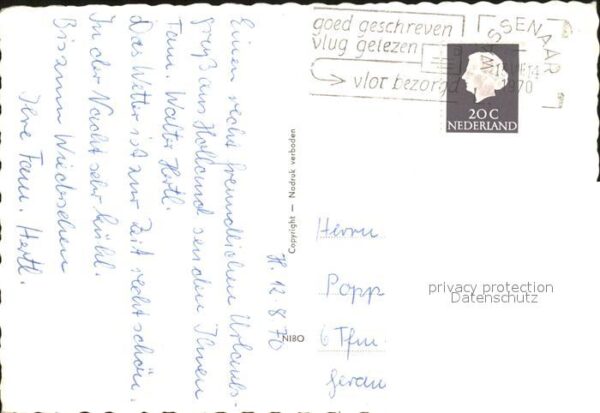 goed geschreven
vlug gelezen
vlot bezorgd
SSENAAR
1970
20 C
NEDERLAND
H. 12. 8. 70
Einen recht freundlichen Urlaubs-
gruß aus Holland senden Ihnen
Fam. Walter Hertl.
Das Wetter ist zur Zeit recht schön.
In der Nacht sehr kühl.
Bis zum Wiedersehen
Ihre Fam. Hertl.
Copyright — Nadruk verboden
NIBO
Herrn
Popp
privacy protection
Datenschutz